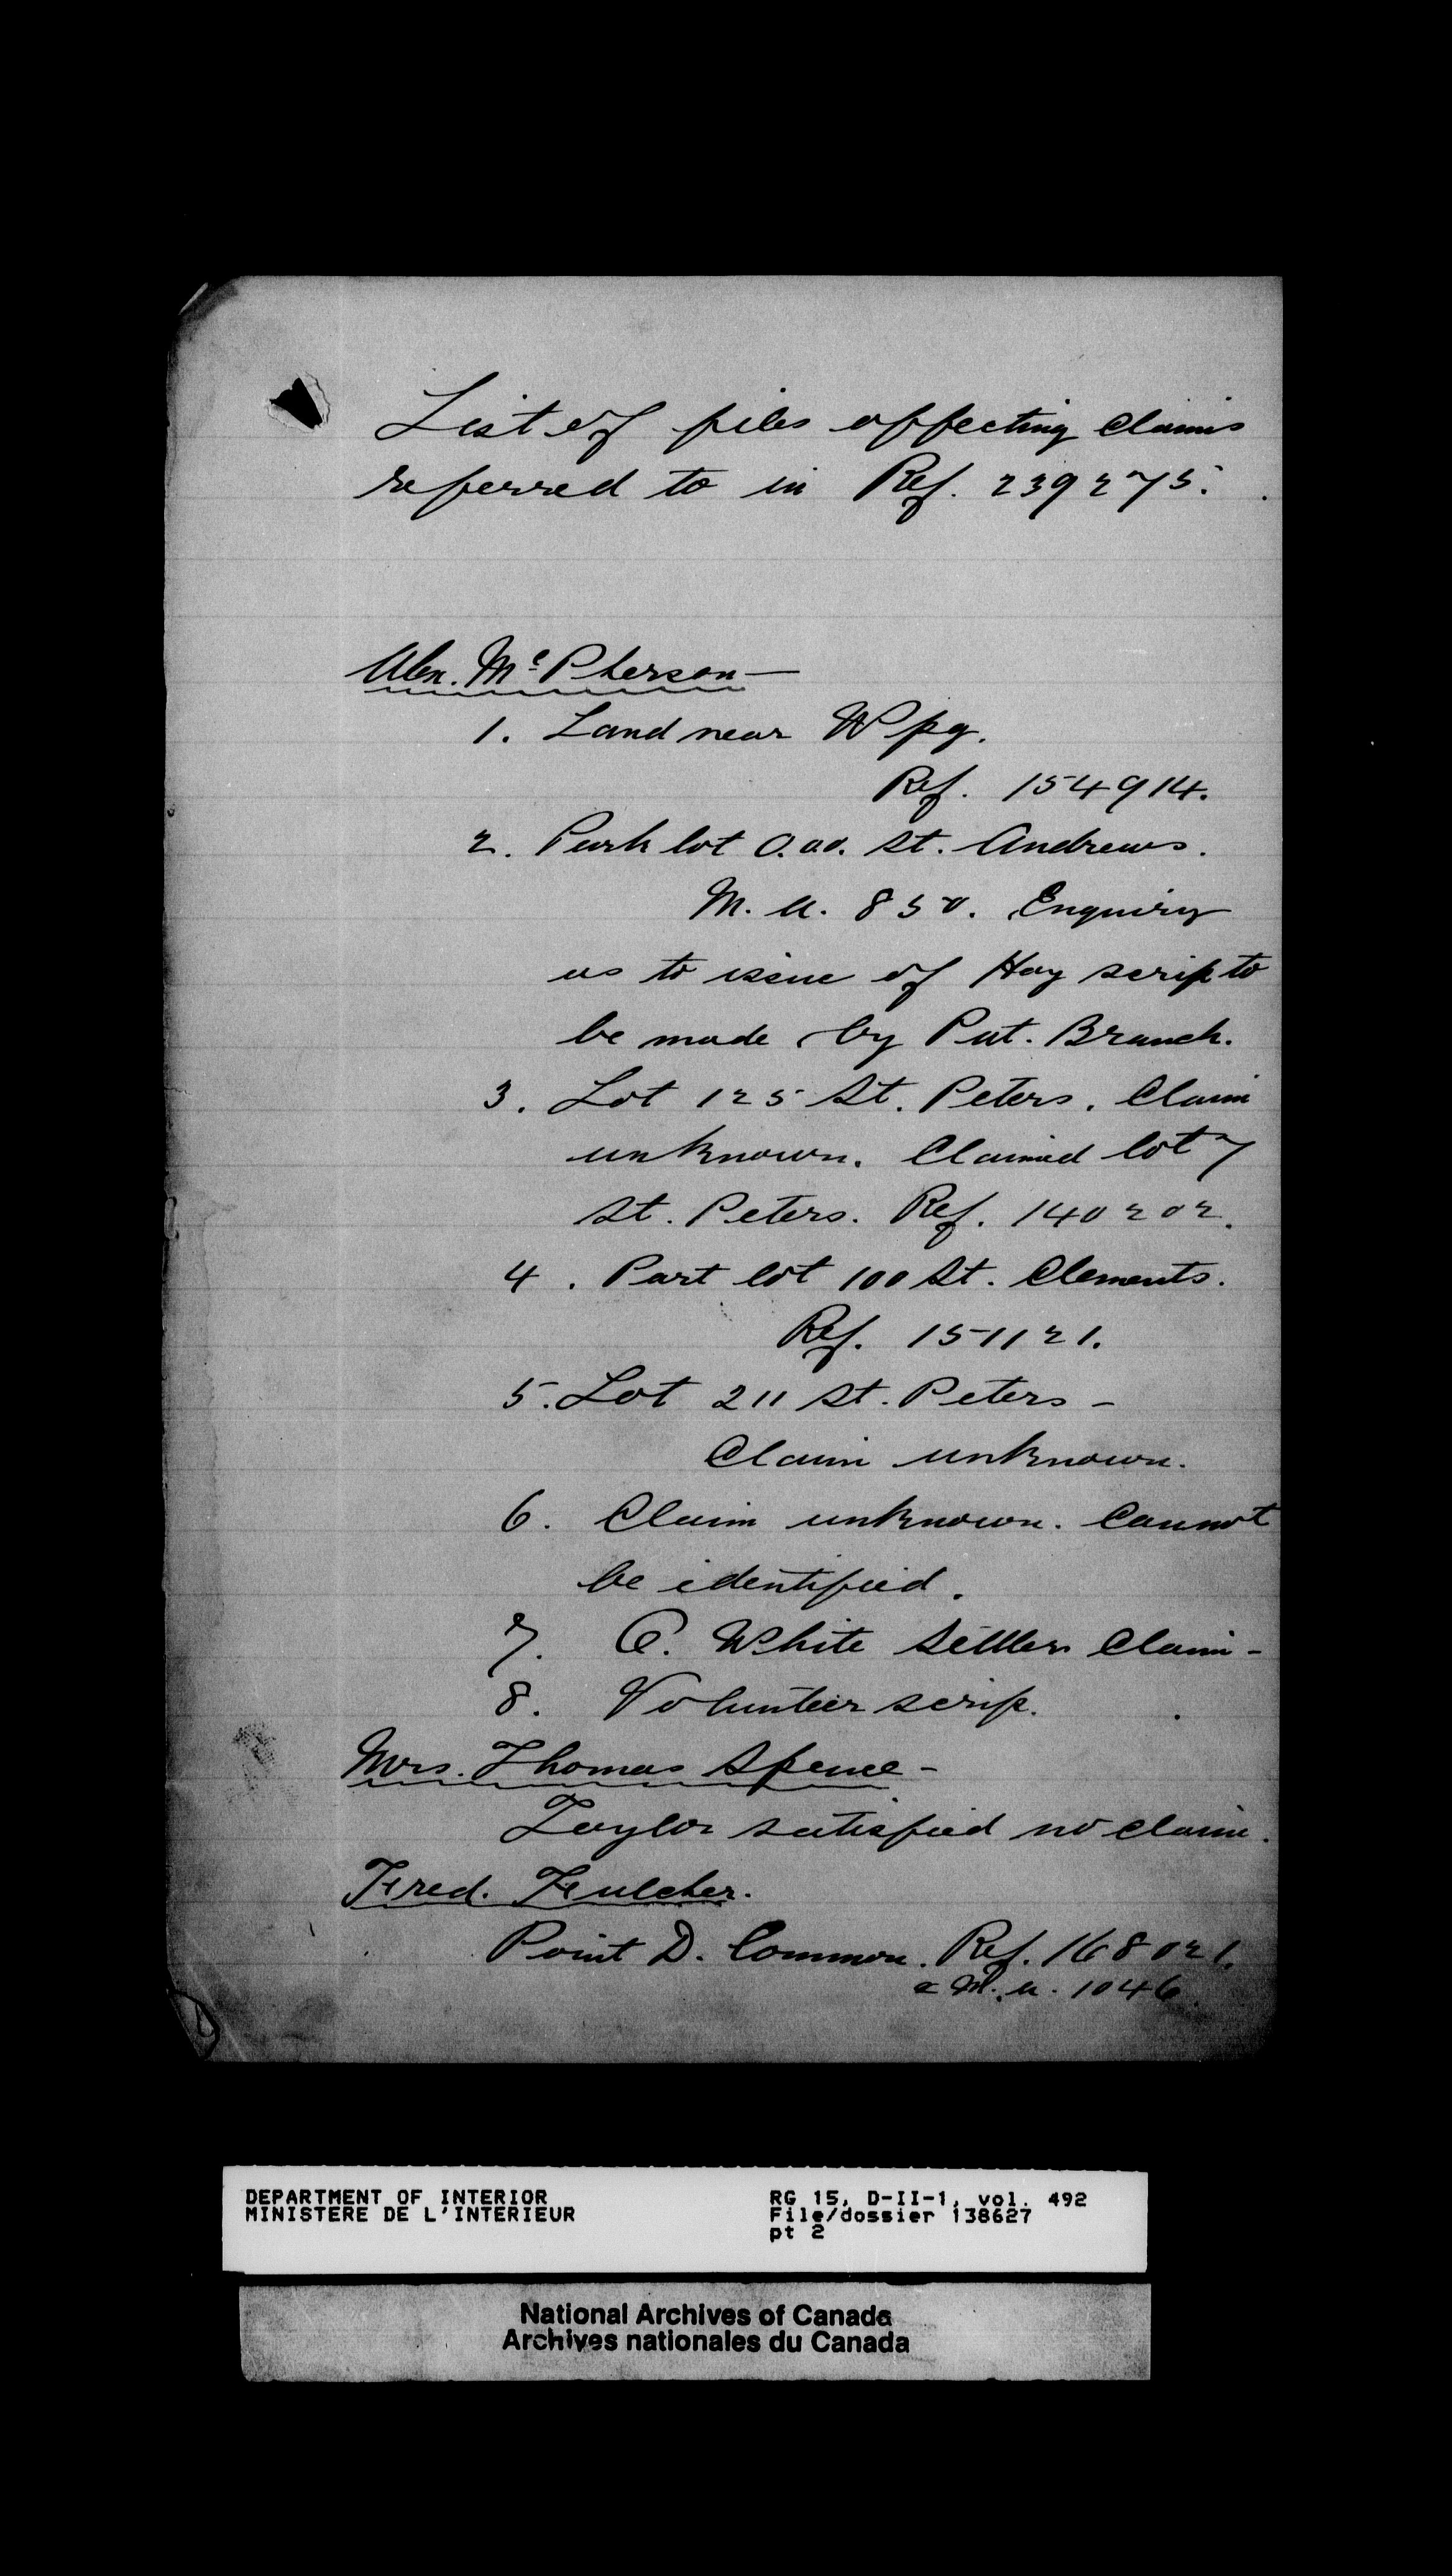 List of files affecting claims
referred to in Ref. 239275.
Alex. McPherson—
1. Land near Wpg.
Ref. 154914.
2. Park lot St. Andrews.
M. A. 850. Enquiry
as to issue of Hay scrip to
be made by Pat. Branch.
3. Lot 125 St. Peters. Claim
unknown. Claimed lot 7
St. Peters. Ref. 140202.
4. Part lot 100 St. Clements.
Ref. 151121.
5. Lot 211 St. Peters -
Claim unknown.
6. Claim unknown. Cannot
be identified.
7. White Settler Claim -
8. Volunteer scrip.
Mrs. Thomas Spence -
Taylor satisfied no claim.
Fred. Fulcher.
Point D. Common. Ref. 168021.
1046
DEPARTMENT OF INTERIOR
MINISTERE DE L'INTERIEUR
RG 15, D-II-1, vol. 492
File/dossier 138627
pt 2
National Archives of Canada
Archives nationales du Canada